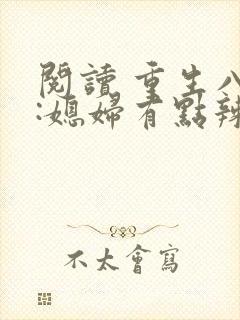 閱讀 重生八
:媳婦有點辣
不太會寫